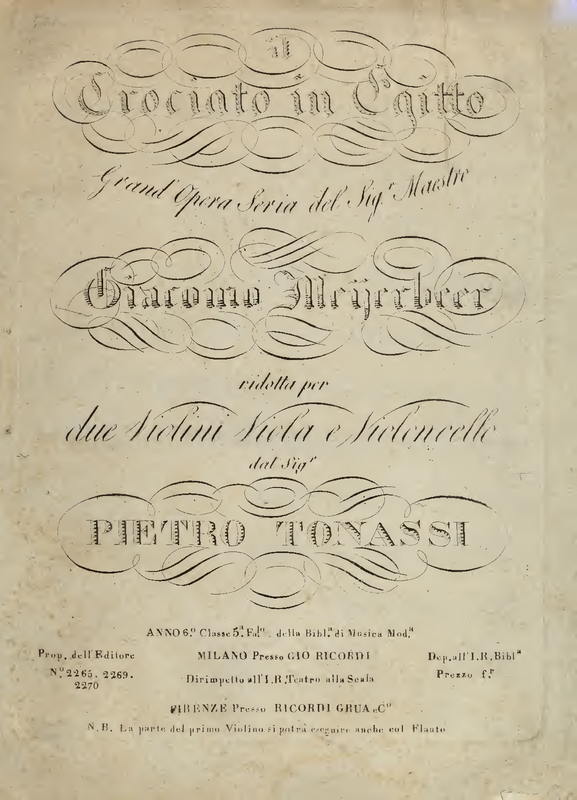 il
Crociato in Egitto
Grand' Opera Seria del Sig.r Maestro
Giacomo Meijerbeer
ridotta per
due Violini Viola e Violoncello
dal Sig.r
PIETRO TONASSI
ANNO 6.o Classe 5.a Fa.lo . della Bibl.a di Musica Mod.a
Prop. dell'Editore MILANO Presso GIO RICORDI Dep.all'I.R.Bibl.a
N.o 2265. 2269. Dirimpetto all'I.R.Teatro alla Scala Prezzo f.r
2270
FIRENZE Presso RICORDI GRUA e C.o
N.B. La parte del primo Violino si potrà eseguire anche col Flauto